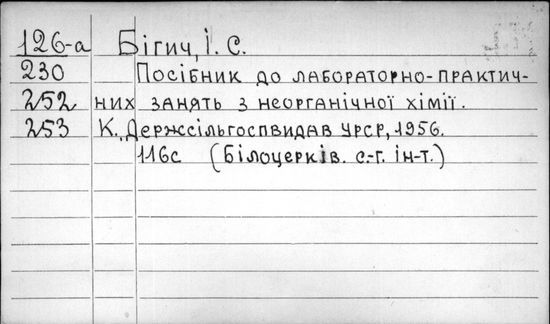 126-а Бігич, І. С.
230 Посібник до лабораторно-практич-
252 них занять з неорганічної хімії.
253 К., Держсільгоспвидав УРСР, 1956.
116с (Білоцерків. с.-г. ін-т.)